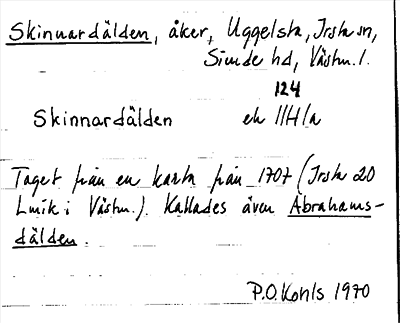 Skinnardälden, åker, Uggelsta, Irsta sn,
Siende hd, Västm. l.
124
Skinnardälden ek 11H1a
Taget från en karta från 1707 (Irsta 20
Lmik i Västm.). Kallades även Abrahams-
dälden.
P.O. Kohls 1970